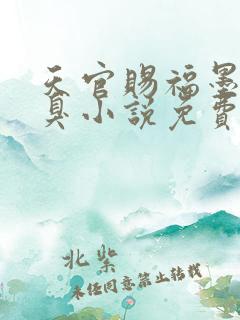 天官赐福墨
真小说免费
北柴
未经同意禁止转载